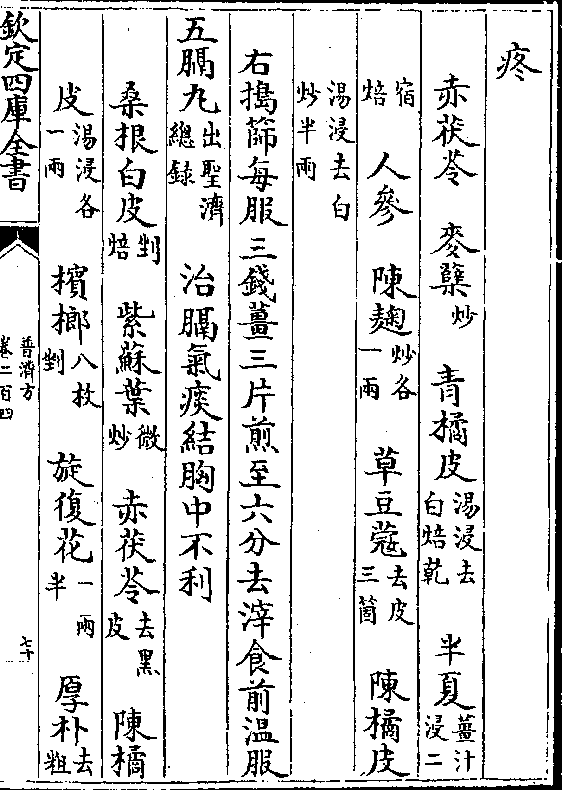 疼
赤茯苓 麥糵炒 青橘皮湯浸去白焙乾 半夏薑汁浸二
宿焙 人參 陳麹炒各一兩 草豆蔻去皮三箇 陳橘皮
湯浸去白炒半兩
右搗篩每服三錢薑三片煎至六分去滓食前溫服
五膈丸出聖濟總録 治膈氣痰結胸中不利
桑根白皮剉焙 紫蘇葉微炒 赤茯苓去黑皮 陳橘
皮湯浸各一兩 檳榔八枚剉 旋復花一兩半 厚朴去粗
欽定四庫全書
普濟方
卷二百四
七十